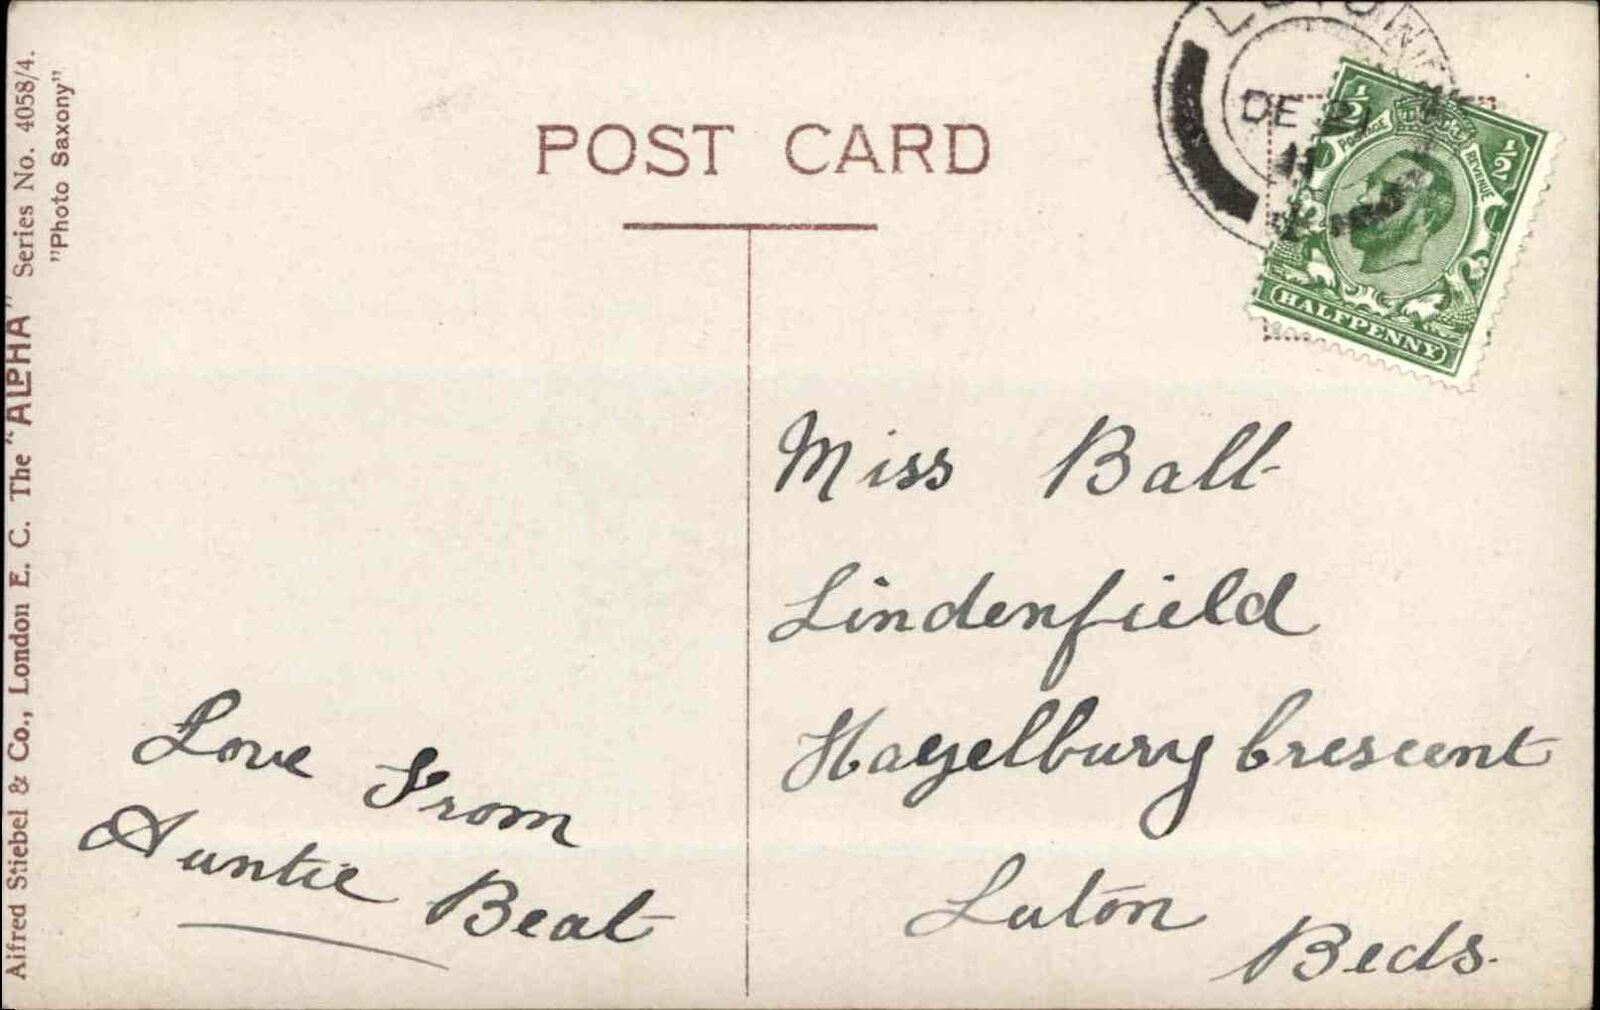 Alfred Stiebel & Co., London E. C. The "ALPHA" Series No. 4058/4.
"Photo Saxony"
POST CARD
LUTON
DE 21
11
½ ½
POSTAGE REVENUE
HALFPENNY
Miss Ball
Lindenfield
Hazelbury Crescent
Luton
Beds.
Love From
Auntie Beat